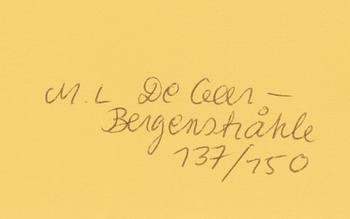 M. L De Geer –
Bergenstråhle
137/150